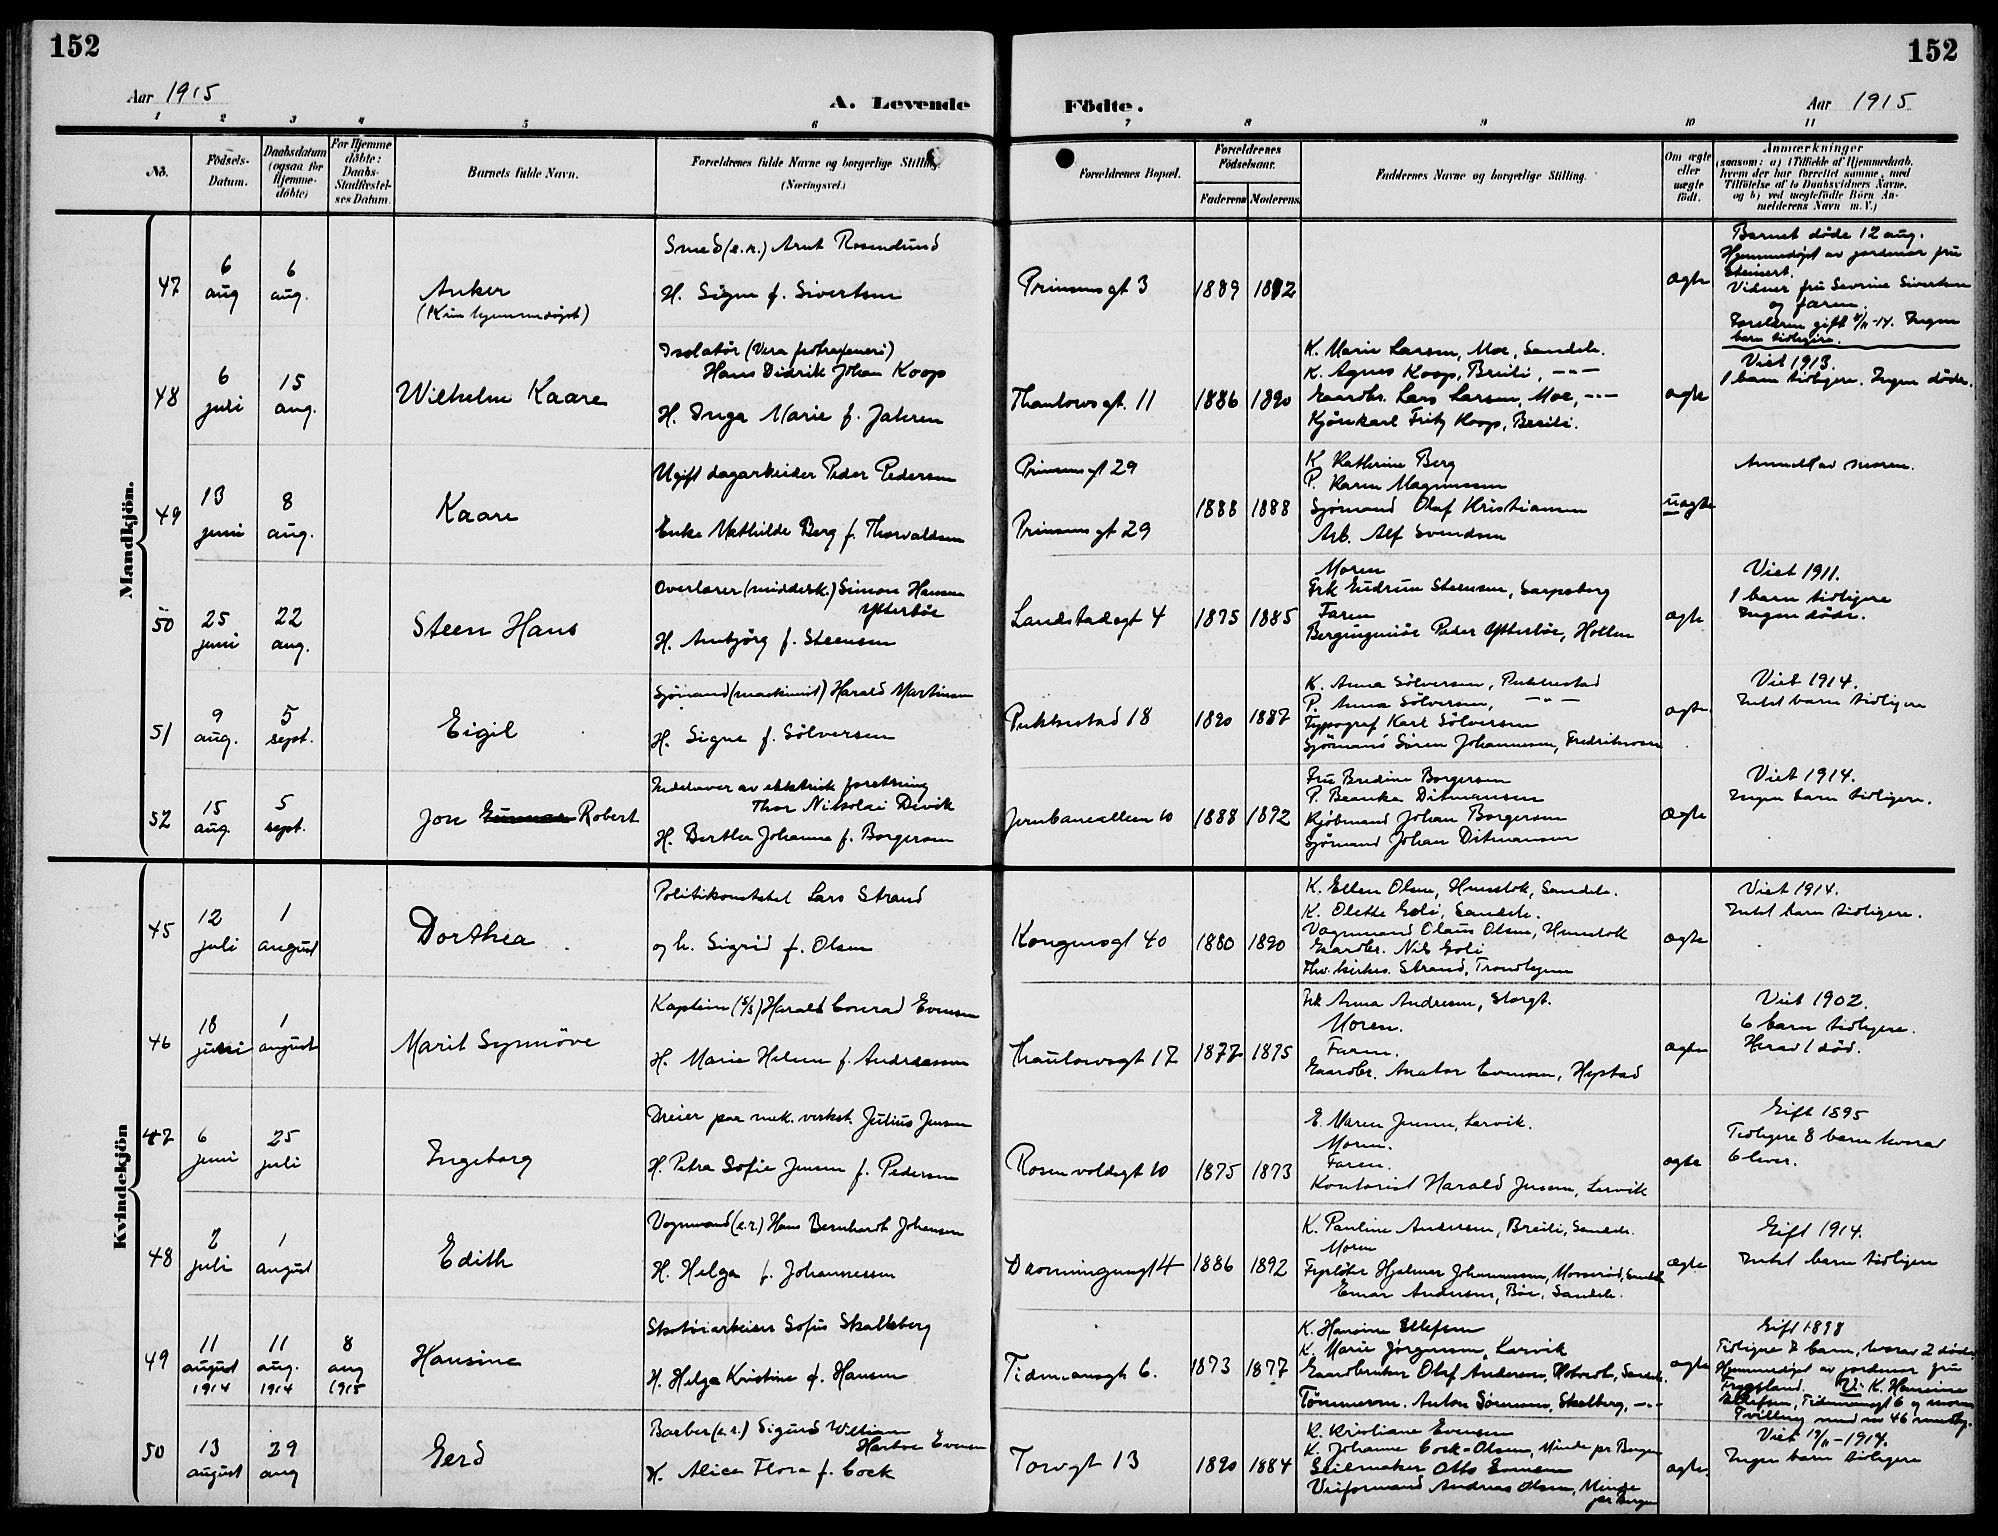 152
152
Aar 1915
A. Levende
Födte.
Aar 1915
1 2 3 4 5 6 7 8 9 10 11
No.
Födsels-Datum.
Daabsdatum (ogsaa for Hjemme-döbte)
For Hjemme döbte: Daabs-Stadfæstel-ses Datum.
Barnets fulde Navn.
Forældrenes fulde Navne og borgerlige Stilling.
(Næringsvei.)
Forældrenes Bopæl.
Forældrenes Födselsaar.
Faderens Moderens
Faddernes Navne og borgerlige Stilling.
Om ægte eller uægte födt.
Anmærkninger
(saasom: a) i Tilfælde af Hjemmedaab,
hvem der har forrettet samme, med
Tilföielse af to Daabsvidners Navne,
og b) ved uægtefödte Börn An-
melderens Navn m. V.)
Mandkjön.
47
6 aug
6 aug.
Anker
(Kun hjemmedøpt)
Smed (e.r.) Arnt Rosenlund
H. Signe f. Sivertsen
Prinsensgt 3
1889
1892
ægte
Barnet døde 12 aug.
Hjemmedøpt av jordmor fru
Steinert.
Vidner fru Severine Sivertsen
og faren.
Forældren gift -14. Ingen
barn tidligere.
48
6 juli
15 aug.
Wilhelm Kaare
Isolatør (Vera fedtraffineri)
Hans Didrik Johan Koop
H. Inga Marie f. Jahren
Thaulowsgt. 11
1886
1890
K. Marie Larsen, Moe, Sandeh.
K. Agnes Koop, Breili, -"-
Gaardbr. Lars Larsen, Moe, -"-
Kjørekarl Fritz Koop, Breili.
ægte
Viet 1913.
1 barn tidligere. Ingen døde.
49
13 juni
8 aug.
Kaare
Ugift dagarbeider Peder Pedersen
Enke Mathilde Berg f. Thorvaldsen
Prinsensgt 29
Prinsensgt 29
1888
1888
K Kathrine Berg
P. Karen Magnussen
Sjømand Olaf Kristiansen
Arb. Alf Svendsen
uægte
Anmeldt av moren.
50
25 juni
22 aug.
Steen Hans
Overlærer (middelsk.) Simon Hansen
Ytterbøe
H. Anbjørg f. Steensen
Landstadsgt 4
1875
1885
Moren
Frk Gudrun Steensen, Sarpsborg
Faren
Bergingeniør Peder Ytterbøe, Holten
ægte
Viet 1911.
1 barn tidligere
Ingen døde.
51
9 aug.
5 sept.
Eigil
Sjømand (maskinist) Harald Martinsen
H. Signe f. Sölversen
Pukkestad 18
1890
1887
K. Anna Sölversen, Pukkestad
P. Anna Sölversen, -"-
Typograf Karl Sölversen
Sjömand Sören Johannessen, Fredriksværn
ægte
Viet 1914.
Intet barn tidligere
52
15 aug.
5 sept.
Jon Gunnar Robert
Indehaver av elektrisk forretning
Thor Nikolai Devik
H. Berthe Johanne f. Borgersen
Jernbanealleen 10
1888
1892
Fru Bredine Borgersen
P. Bianka Ditmansen
Kjøbmand Johan Borgersen
Sjømand Johan Ditmansen
ægte
Viet 1914.
Ingen barn tidligere.
Kvindekjön
45
12 juli
1 august
Dorthea
Politikonstabel Lars Strand
og h. Sigrid f. Olsen
Kongensgt 40
1880
1890
K. Ellen Olsen, Hunstok, Sandeh.
K. Olette Goli, Sandeh.
Vognmand Claus Olsen, Hunstok
Gaardbr. Nils Goli
Strand, Trondhjem
ægte
Viet 1914.
Intet barn tidligere.
46
18 juni
1 august
Marit Synnöve
Kaptein (S/S) Harald Conrad Evensen
H. Marie Helene f. Andreassen
Thaulowsgt 17
1877
1875
Frk Anna Andresen, Storgt.
Moren.
Faren.
Gaardbr. Anton Evensen, Hystad
ægte
Viet 1902.
6 barn tidligere.
Herav 1 død.
47
6 juni
25 juli
Ingeborg
Dreier paa mek. verkst. Julius Jensen
H. Petra Sofie Jensen f. Pedersen
Rosenvoldsgt 10
1875
1873
E. Maren Jensen, Larvik.
Moren.
Faren.
Kontorist Harald Jensen, Larvik
ægte
Gift 1895
Tidligere 8 barn hvorav
6 lever.
48
2 juli
1 august
Edith
Vognmand (e.r.) Hans Bernhardt Johansen
H. Helga f. Johannessen
Dronningensgt 4
1886
1892
K. Pauline Andersen, Breili, Sandeh.
Moren
Fyrbøter Hjalmar Johannessen, Sandeh
Einar Andersen, Bøe, Sandeh.
ægte
Gift 1914.
Intet barn tidligere
49
11 august 1914
11 aug. 1914
8 aug 1915
Hansine
Skotøiarbeider Sofus Skalleberg
H. Helga Kristine f. Hansen
Tidemansgt 6.
1873
1877
K. Hansine Ellefsen
K. Marie Jørgensen, Larvik
Gaardbruker Olaf Andersen, Sandeh.
Tömmerm. Anton Sörensen, Skalberg, -"-
ægte
Gift 1898
Tidligere 7 barn, hvorav 2 døde
Hjemmedøpt av jordmor fru
Frygtland. Vi: K. Hansine
Ellefsen, Tidemansgt 6 og moren
Tvilling med no 46 mandkj.
50
13 august
29 aug
Gerd
Barber (e.r.) Sigurd William
Evensen
H. Alice Flora f. Cock
Torvgt 13
1890
1884
K. Kristiane Evensen
K. Johanne Cock-Olsen, Minde pr Bergen
Seilmaker Otto Evensen
Andreas Olsen, Minde
pr Bergen
ægte.
Viet 19/11-1914.
Ingen barn tidligere